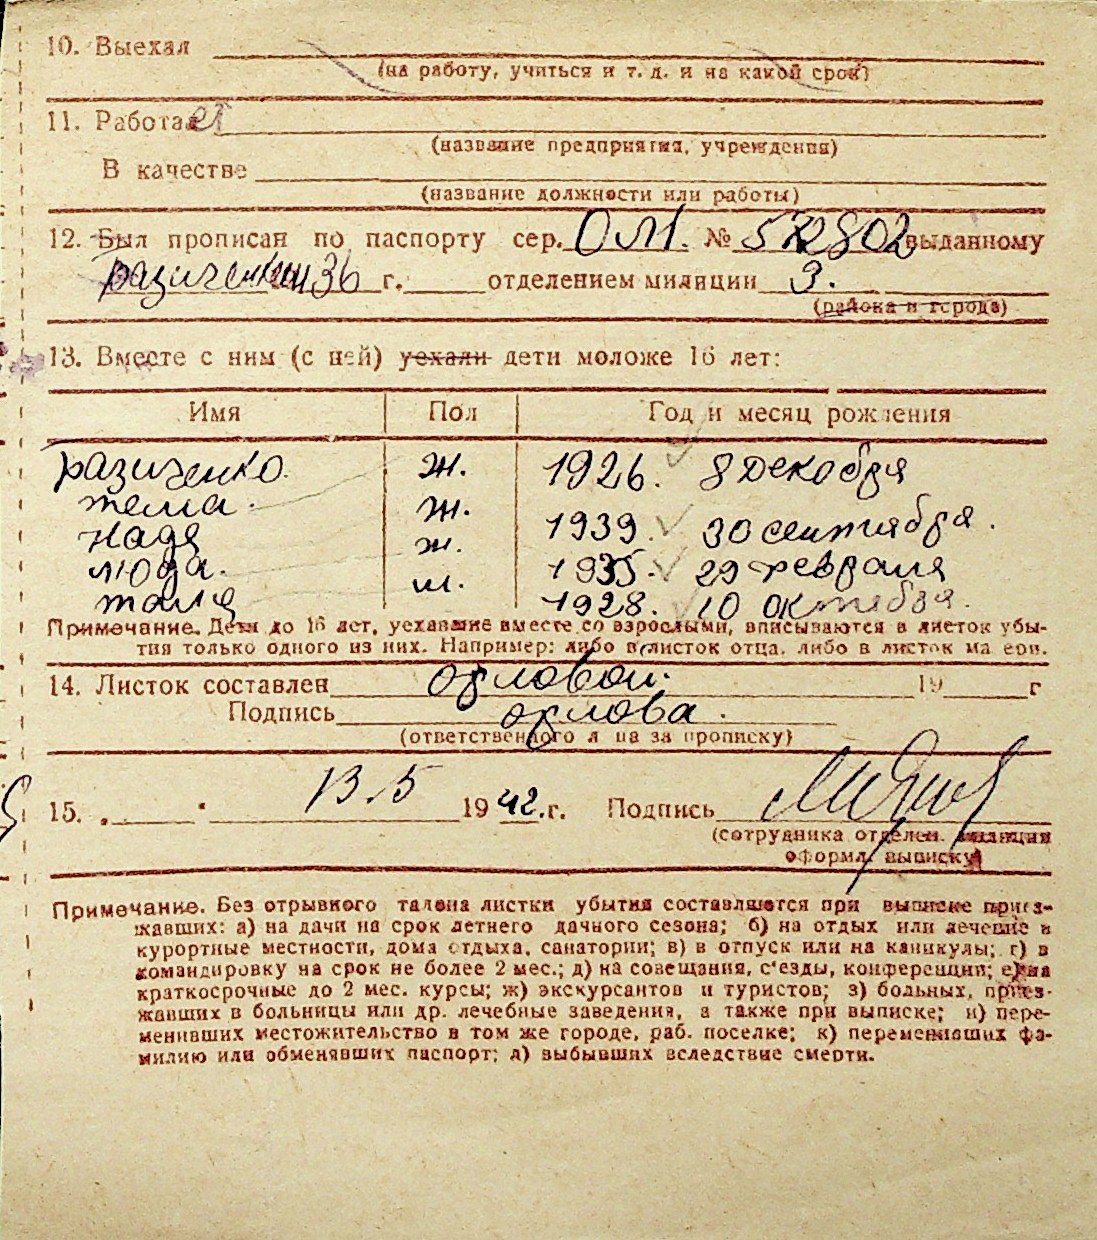 10. Выехал
(на работу, учиться и т. д. и на какой срок)
11. Работает
(название предприятия, учреждения)
В качестве
(название должности или работы)
12. Был прописан по паспорту сер. ОМ. № 572802 выданному
36 г. отделением милиции 9.
(района и города)
13. Вместе с ним (с ней) уехали дети моложе 16 лет:
Имя Пол Год и месяц рождения
разиченко. ж. 1926. 8 декобря
ж. 1939. 30 сентября.
надя ж. 1935. 29 февраля
люда. м. 1928. 10 октебря.
толя
Примечание. Дети до 16 лет, уехавшие вместе со взрослыми, вписываются в листок убы-
тия только одного из них. Например: либо в листок отца, либо в листок матери.
14. Листок составлен орловой. 19 г
Подпись орлова.
(ответственного лица за прописку)
15. 13.5 1942.г. Подпись
(сотрудника отделен. милиции
оформл. выписку)
Примечание. Без отрывного талона листки убытия составляются при выписке приез-
жавших: а) на дачи на срок летнего дачного сезона; б) на отдых или лечение в
курортные местности, дома отдыха, санатории; в) в отпуск или на каникулы; г) в
командировку на срок не более 2 мес.; д) на совещания, с'езды, конференции; е) на
краткосрочные до 2 мес. курсы; ж) экскурсантов и туристов; з) больных, приез-
жавших в больницы или др. лечебные заведения, а также при выписке; и) пере-
менивших местожительство в том же городе, раб. поселке; к) переменивших фа-
милию или обменявших паспорт; л) выбывших вследствие смерти.